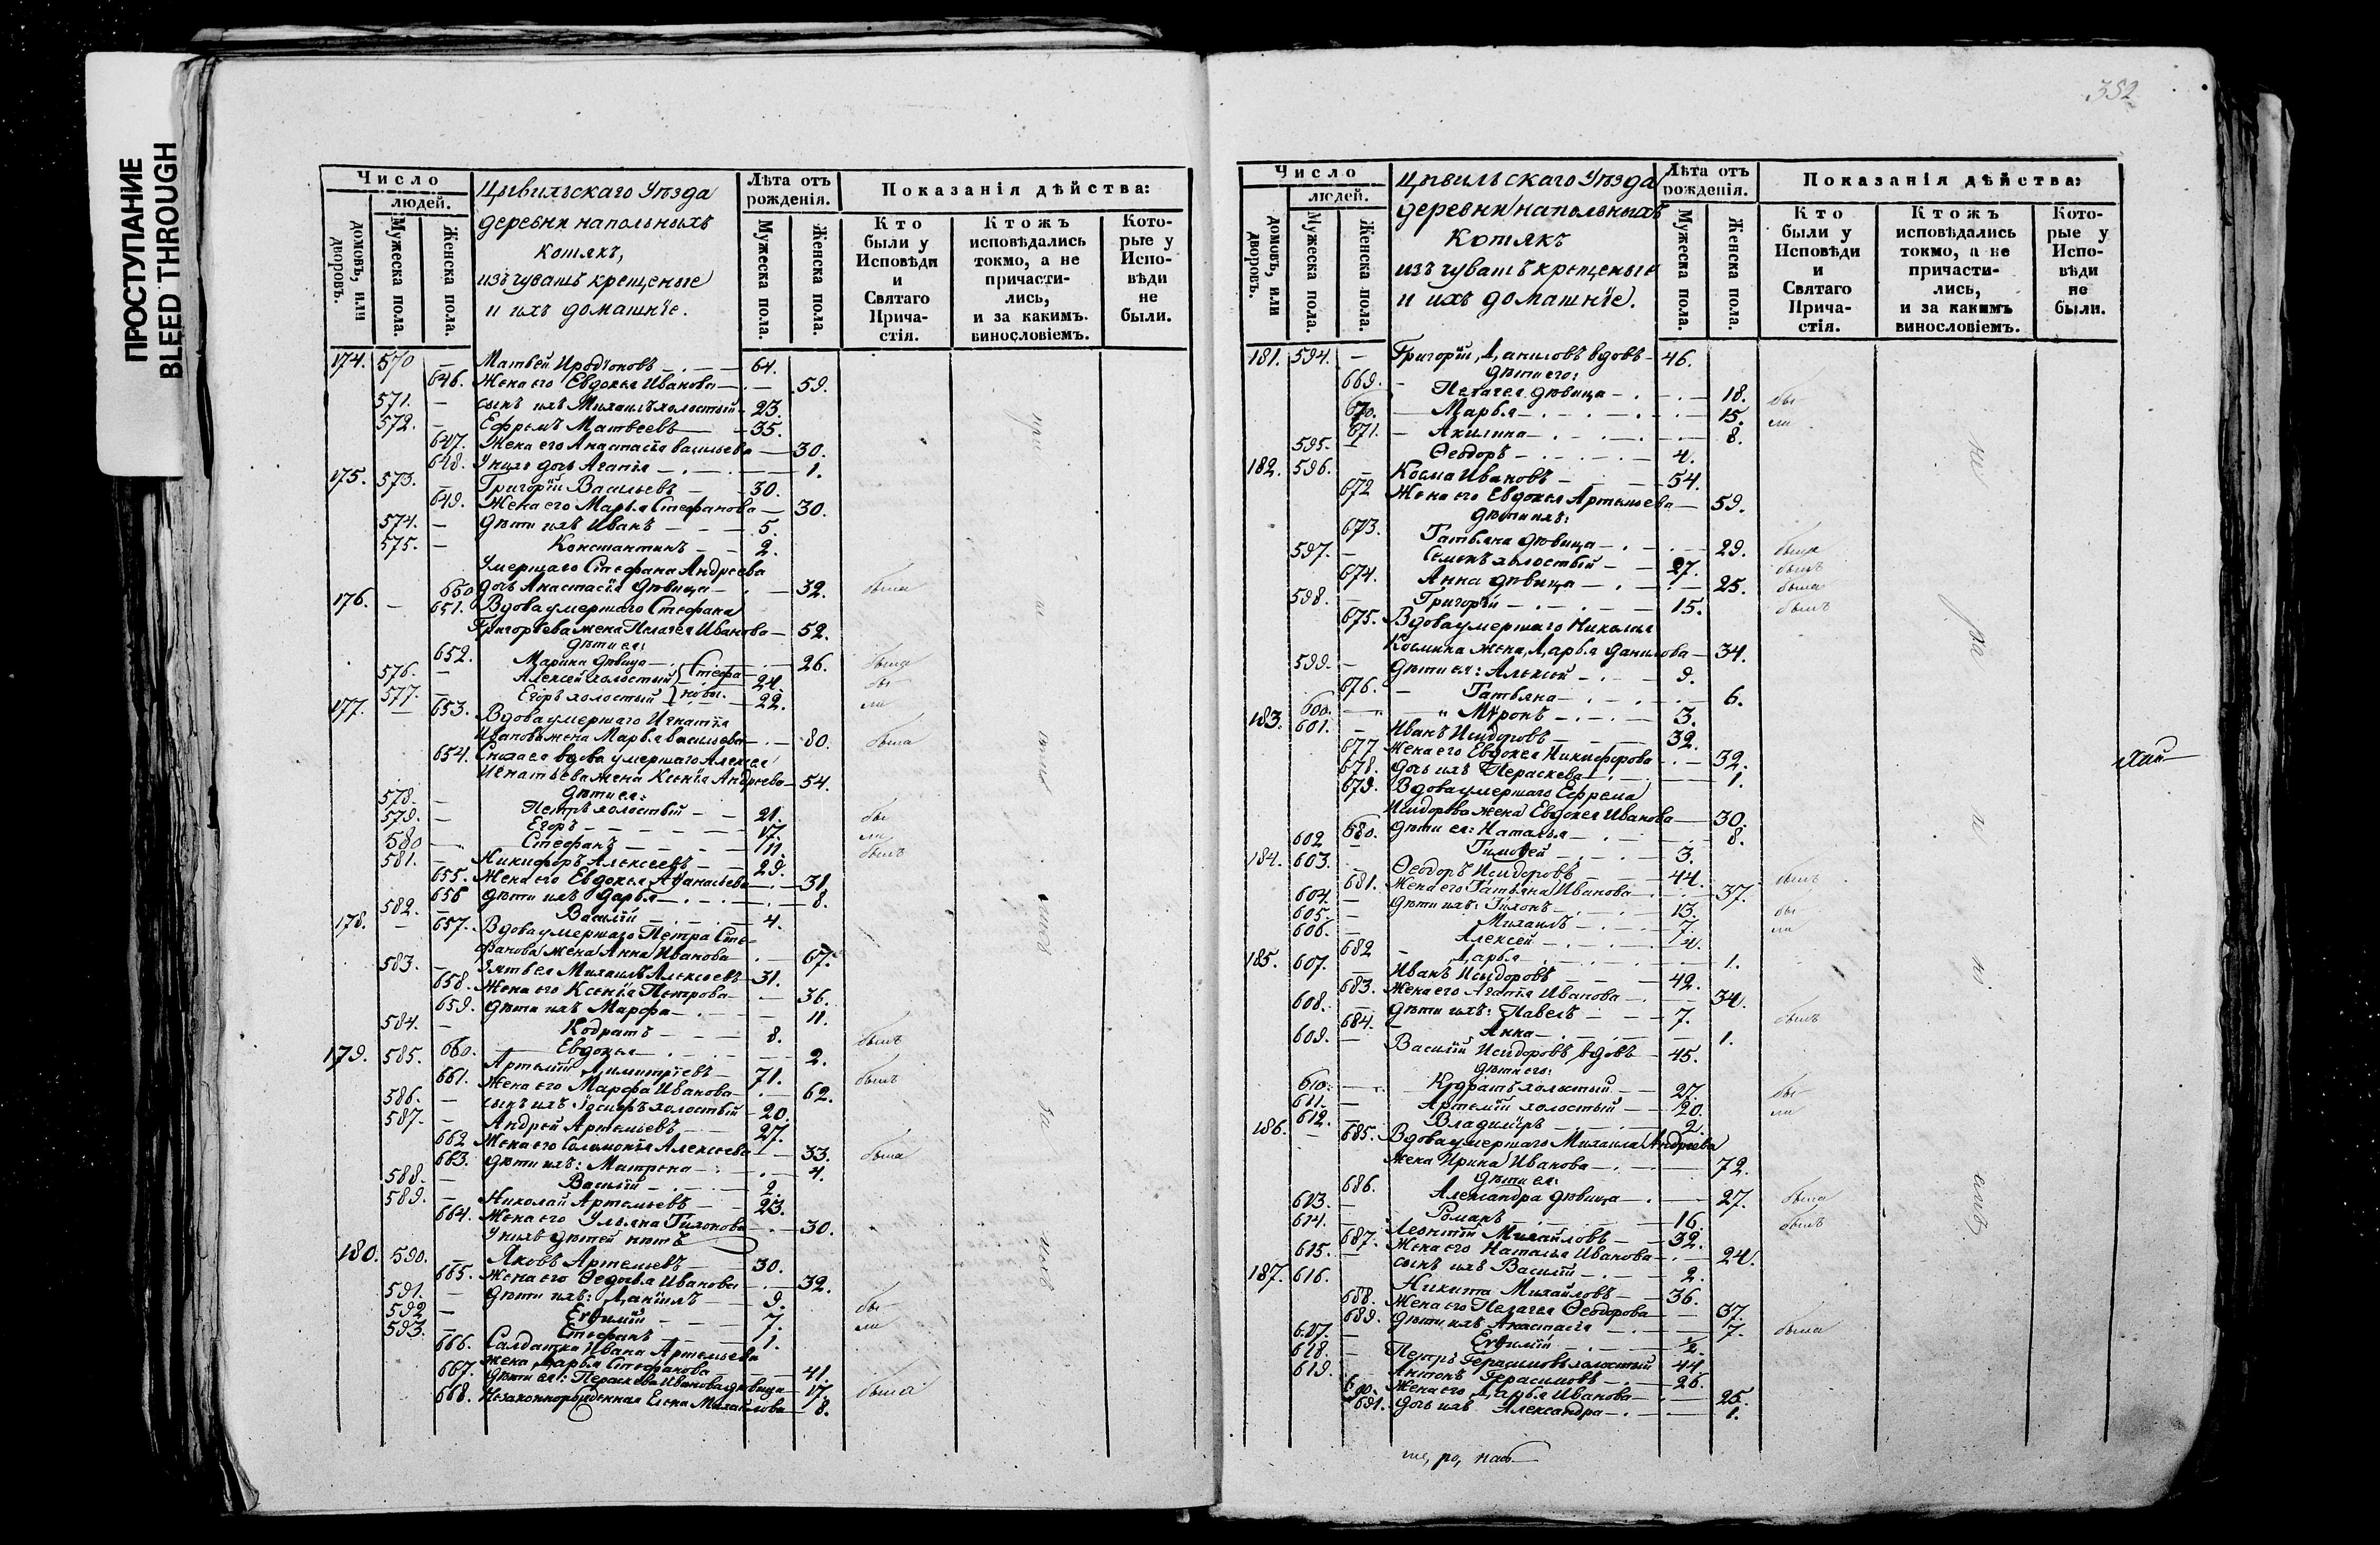 ПРОСТУПАНИЕ
BLEED THROUGH
Число
людей.
домовъ, или дворовъ.
Мужеска пола.
Женска пола.
Цывильскаго Уѣзда
деревни напольныхъ
Котякъ,
изъ чувашъ крещеные
и ихъ домашнїе.
Лѣта отъ рожденія.
Мужеска пола.
Женска пола.
Показанія дѣйства:
Кто были у Исповѣди и Святаго Прича-стія.
Ктожъ исповѣдались токмо, а не причасти-лись, и за какимъ. винословіемъ.
Кото-рые у Испо-вѣди не были.
174. 570 — Матвей Иродїоновъ — 64.
646. Жена его Евдокья Иванова — 59.
571. — сынъ ихъ Михаилъ холостый 23.
572. — Ефремъ Матвеевъ — 35.
647. Жена его Анастасїя Васильева — 30.
648. У нихъ дочь Агапїя — 1.
175. 573. — Григорїй Васильевъ — 30.
649. Жена его Марья Стефанова — 30.
574. — дѣти ихъ Иванъ — 5.
575. — Константинъ — 2.
Умершаго Стефана Андреева
650 дочь Анастасїя дѣвица — 32. была
176. — 651. Вдова умершаго Стефана
Григорьева жена Пелагея Иванова — 52.
дѣти ея:
652. Марина дѣвица — 26. была
576. — Алексей холостый } Стефа- 24. бы
577. — Егоръ холостый } новы. 22. ли
177. — 653. Вдова умершаго Игнатїя
Иванова жена Марья Васильева — 80. была
654. Сноха ея вдова умершаго Алексея
Игнатьева жена Ксенїя Андреева — 54.
дѣти ея:
578. — Петръ холостый — 21. бы
579. — Егоръ — 17. ли
580 — Стефанъ — 11. былъ
581. — Никифоръ Алексеевъ — 29.
655. Жена его Евдокья Аѳанасьева — 31.
656 дѣти ихъ Дарья — 8.
582. — Василїй — 4.
178. — 657. Вдова умершаго Петра Сте-
фанова жена Анна Иванова — 67.
583. — Зять ея Михаилъ Алексеевъ — 31.
658. Жена его Ксенїя Петрова — 36.
659. дѣти ихъ Марфа — 11.
584. — Кодратъ — 8. былъ
660. — Евдокья — 2.
179. 585. Артемїй Димитрїевъ — 71. былъ
661. Жена его Марфа Иванова — 62.
586. — сынъ ихъ Іосифъ холостый — 20.
587. — Андрей Артемьевъ — 27.
662 Жена его Соломонїя Алексеева — 33. была
663. дѣти ихъ: Матрона — 4.
588. — Василїй — 2.
589. — Николай Артемьевъ — 23.
664. Жена его Ульяна Тихонова — 30.
У нихъ дѣтей нѣтъ
180. 590. — Яковъ Артемьевъ — 30.
665. Жена его Ѳедосья Иванова — 32.
591. — дѣти ихъ: Данїилъ — 9. бы
592 — Евѳимїй — 7. ли
593. — Стефанъ — 1.
666. Салдатка Ивана Артемьева
жена Дарья Стефанова — 41.
667. дѣти ея: Пераскева Иванова дѣвица — 17. была
668. Незаконнорожденная Елена Михайлова — 8.
352
Число
людей.
домовъ, или дворовъ.
Мужеска пола.
Женска пола.
Цывильскаго Уѣзда
деревни напольныхъ
Котякъ
изъ чувашъ крещеные
и ихъ домашнїе.
Лѣта отъ рожденія.
Мужеска пола.
Женска пола.
Показанія дѣйства:
Кто были у Исповѣди и Святаго Прича-стія.
Ктожъ исповѣдались токмо, а не причасти-лись, и за какимъ винословіемъ.
Кото-рые у Испо-вѣди не были.
181. 594. — Григорїй Даниловъ вдовъ — 46.
дѣти его:
669. — Пелагея дѣвица — 18. бы
670. — Марья — 15. ли
671. — Акилина — 8.
595. — Ѳеодоръ — 4.
182. 596. — Косма Ивановъ — 54.
672 Жена его Евдокея Артемьева — 59.
дѣти ихъ:
673. Татьяна дѣвица — 29. была
597. — Семенъ холостый — 27. былъ
674. Анна дѣвица — 25. была
598. — Григорїй — 15. былъ
675. Вдова умершаго Николая
Космина жена Дарья Данилова — 34.
599. — дѣти ея: Алексей — 9.
676. — Татьяна — 6.
600. — Мѵронъ — 3.
183. 601. — Иванъ Исидоровъ — 32.
677 Жена его Евдокея Никифорова — 32.
678. дочь ихъ Пераскева — 1.
679. Вдова умершаго Ефрема
Исидорова жена Евдокея Иванова — 30.
680. дѣти ея: Наталья — 8.
602 — Тимоѳей — 3.
184. 603. — Ѳеодоръ Исидоровъ — 44. былъ
681. Жена его Татьяна Иванова — 37.
604. — дѣти ихъ: Тихонъ — 13. бы
605. — Михаилъ — 7. ли
606. — Алексей — 4.
682 — Дарья — 1.
185. 607. — Иванъ Исидоровъ — 42.
683. Жена его Агапїя Иванова — 34.
608. — дѣти ихъ: Павелъ — 7. былъ
684. — Анна — 1.
609. — Василїй Исидоровъ вдовъ — 45.
дѣти его:
610. — Кодратъ холостый — 27. бы
611. — Артемїй холостый — 20. ли
612. — Владимїръ — 2.
186. — 685. Вдова умершаго Михаила Андреева
жена Ирина Иванова — 72.
дѣти ея:
686. Александра дѣвица — 27. была
613. — Романъ — 16. былъ
614. — Леонтїй Михайловъ — 32.
687. Жена его Наталья Иванова — 24.
615. — сынъ ихъ Василїй — 2.
187. 616. Никита Михайловъ — 36.
688. Жена его Пелагея Ѳеодорова — 37.
689. дѣти ихъ Анастасїя — 7. была
617. — Евѳимїй — 2.
618. — Петръ Герасимовъ холостый 44.
619. — Антонъ Герасимовъ — 26.
690. Жена его Дарья Иванова — 25.
691. дочь ихъ Александра — 1.